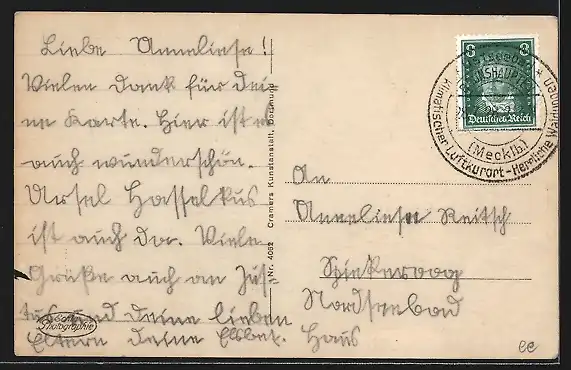 Liebe Anneliese!
Vielen Dank für dei-
ne Karte. Hier ist es
auch wunderschön.
Ursel Hasselkus
ist auch da. Viele
Grüße auch an Jus-
tus und deine lieben
Eltern deine Elsbet.
Echte Photographie
Nr. 4062 Cramers Kunstanstalt, Dortmund
8 8
Deutsches Reich
(Mecklb)
Klimatischer Luftkurort - Herrliche Waldungen
An
Anneliese Reitsch
Spiekeroog
Nordseebad
Haus